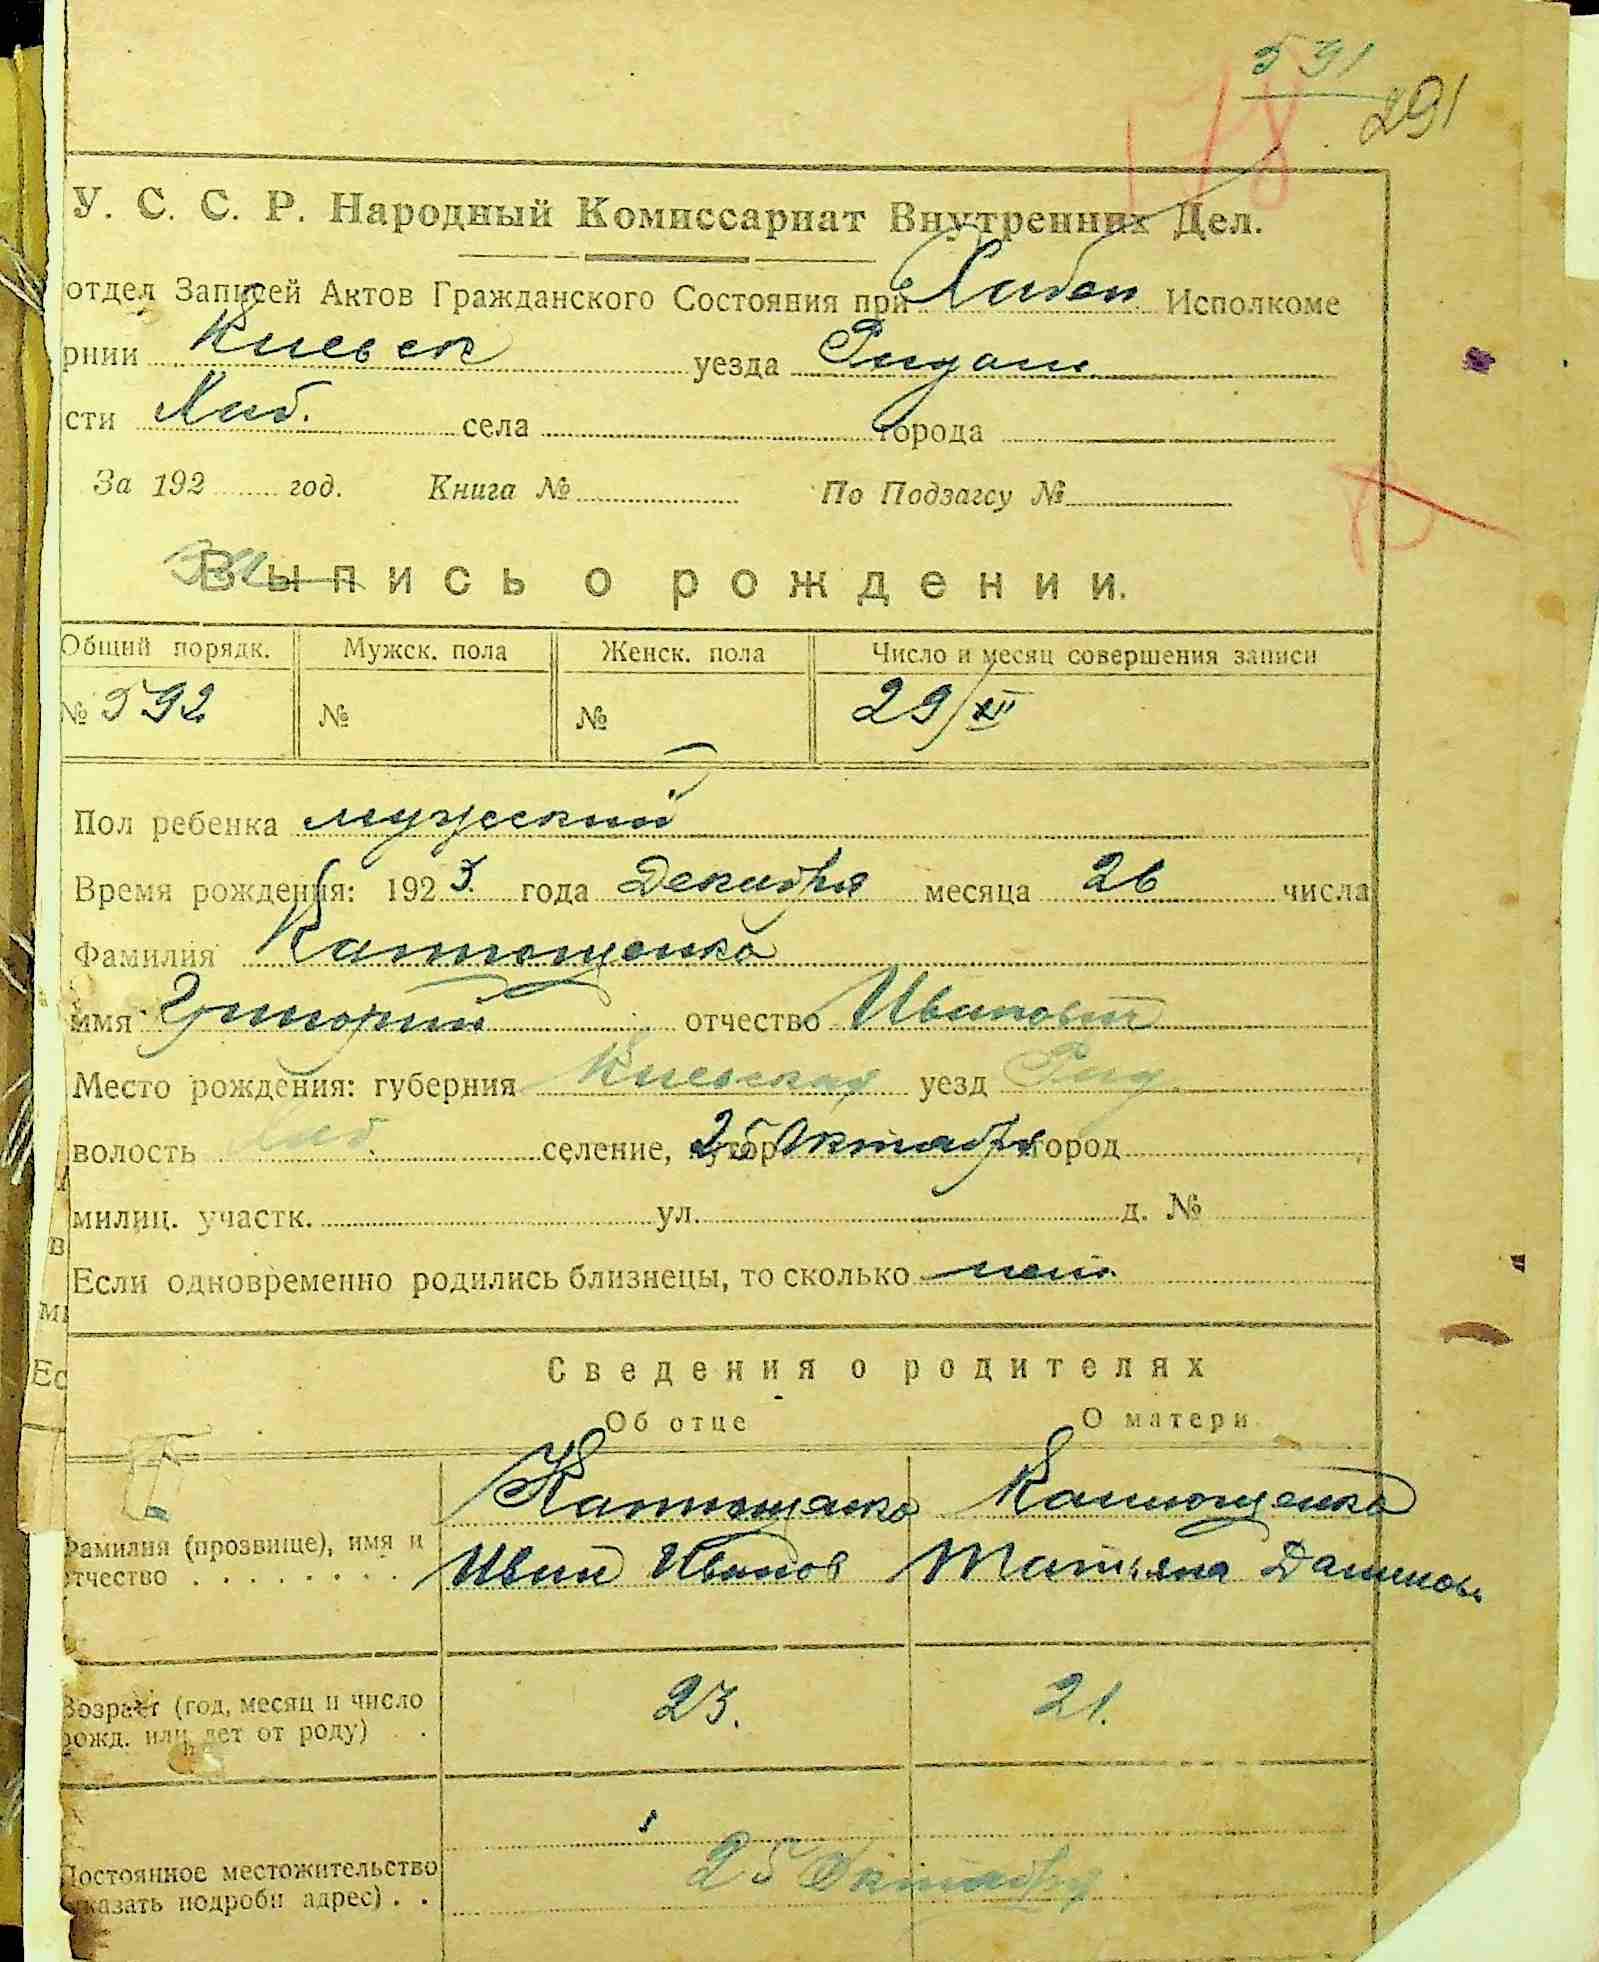 591
291
178
У. С. С. Р. Народный Комиссариат Внутренних Дел.
отдел Записей Актов Гражданского Состояния при Хабен Исполкоме
рнии Киевск уезда Радом
сти Хаб. села города
За 192 год. Книга № По Подзагсу №
Выпись о рождении.
Общий порядк. Мужск. пола Женск. пола Число и месяц совершения записи
№ 592 № № 29/XII
Пол ребенка мужеский
Время рождения: 1923. года Декабря месяца 26 числа
Фамилия Катющенко
имя Григорий отчество Иванович
Место рождения: губерния Киевская уезд Рад.
волость Хаб. селение, хутор 25 Октября город
милиц. участк. ул. д. №
Если одновременно родились близнецы, то сколько нет.
Сведения о родителях
Об отце О матери
Катющенко Катющенко
Фамилия (прозвище), имя и
отчество Иван Иванов Татьяна
Возраст (год, месяц и число 23. 21.
рожд. или лет от роду)
Постоянное местожительство 25 Октября
указать подробн адрес)